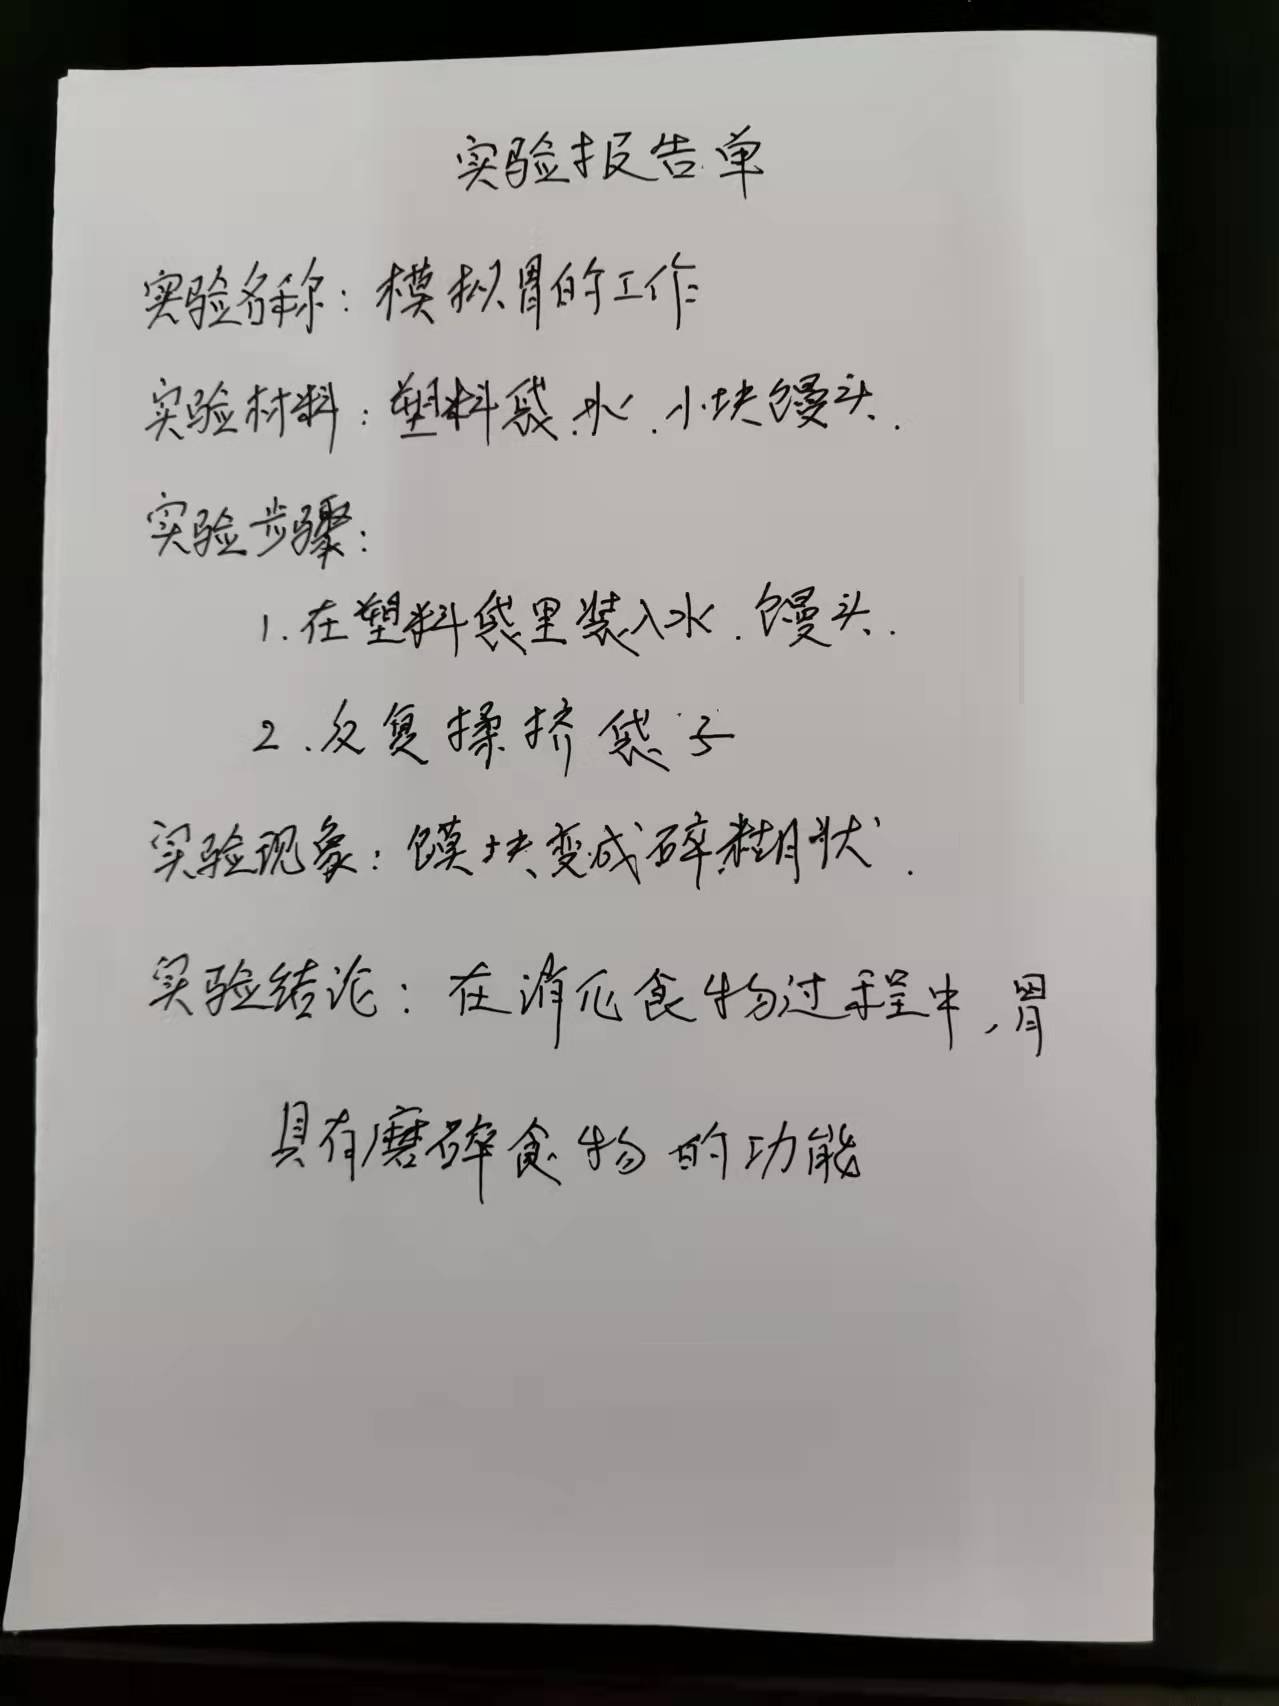 实验报告单
实验名称：模拟胃的工作
实验材料：塑料袋.水.小块馒头.
实验步骤：
1.在塑料袋里装入水.馒头.
2.反复揉挤袋子
实验现象：馍块变成碎糊状.
实验结论：在消化食物过程中,胃
具有磨碎食物的功能